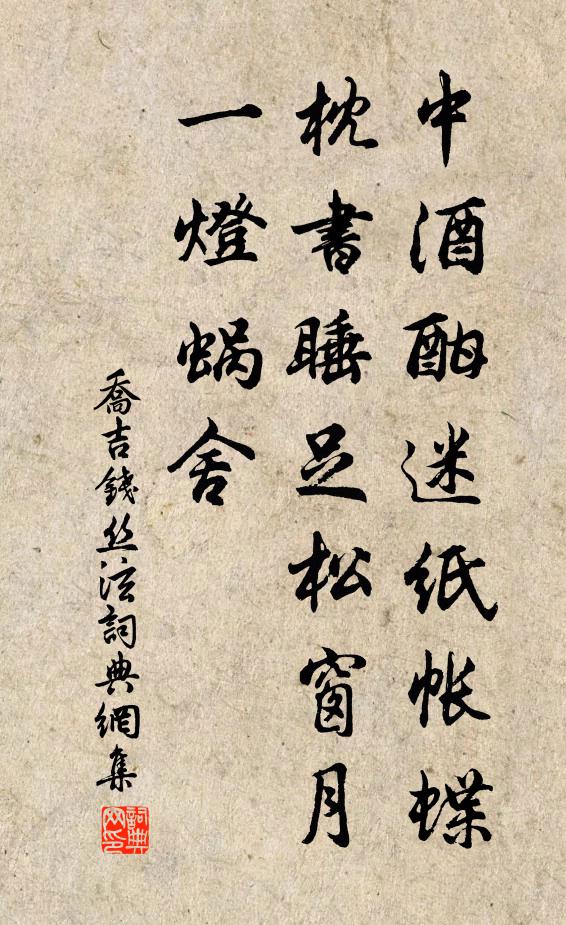 中酒酣迷纸帐蝶
枕書睡足松窗月
一燈蝸舍
喬吉錢丝泫詞典網集
詞典
网印